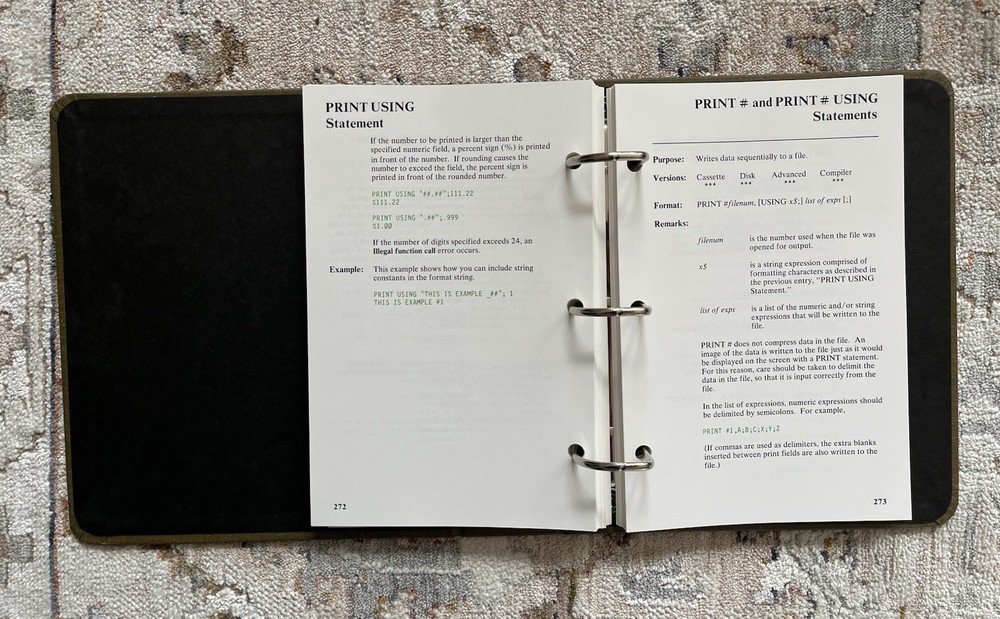 PRINT USING
Statement
If the number to be printed is larger than the
specified numeric field, a percent sign (%) is printed
in front of the number. If rounding causes the
number to exceed the field, the percent sign is
printed in front of the rounded number.
PRINT USING "##.##";111.22
%111.22
PRINT USING ".##";.999
%1.00
If the number of digits specified exceeds 24, an
Illegal function call error occurs.
Example: This example shows how you can include string
constants in the format string.
PRINT USING "THIS IS EXAMPLE _##"; 1
THIS IS EXAMPLE #1
272
PRINT # and PRINT # USING
Statements
Purpose: Writes data sequentially to a file.
Versions: Cassette Disk Advanced Compiler
*** *** *** ***
Format: PRINT #filenum, [USING x$;] list of exps [;]
Remarks:
filenum is the number used when the file was
opened for output.
x$ is a string expression comprised of
formatting characters as described in
the previous entry, "PRINT USING
Statement."
list of exps is a list of the numeric and/or string
expressions that will be written to the
file.
PRINT # does not compress data in the file. An
image of the data is written to the file just as it would
be displayed on the screen with a PRINT statement.
For this reason, care should be taken to delimit the
data in the file, so that it is input correctly from the
file.
In the list of expressions, numeric expressions should
be delimited by semicolons. For example,
PRINT #1,A;B;C;X;Y;Z
(If commas are used as delimiters, the extra blanks
inserted between print fields are also written to the
file.)
273